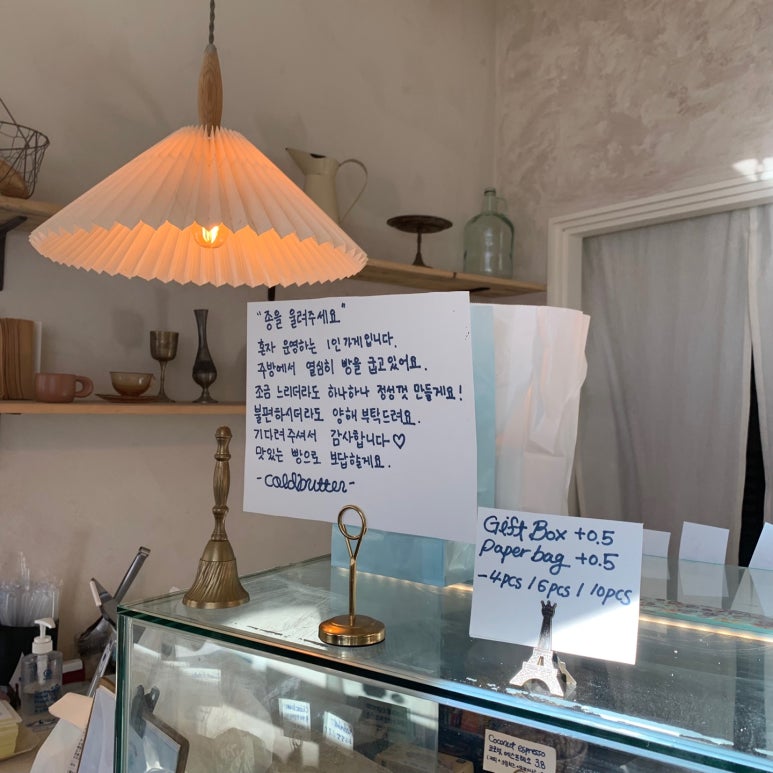 "종을 울려주세요"
혼자 운영하는 1인 가게입니다.
주방에서 열심히 빵을 굽고있어요.
조금 느리더라도 하나하나 정성껏 만들게요!
불편하시더라도 양해 부탁드려요.
기다려주셔서 감사합니다♡
맛있는 빵으로 보답할게요.
-coldbutter-
Gift Box +0.5
paper bag +0.5
-4pcs / 6pcs / 10pcs
Coconut espresso
코코넛 에스프레소 3.8